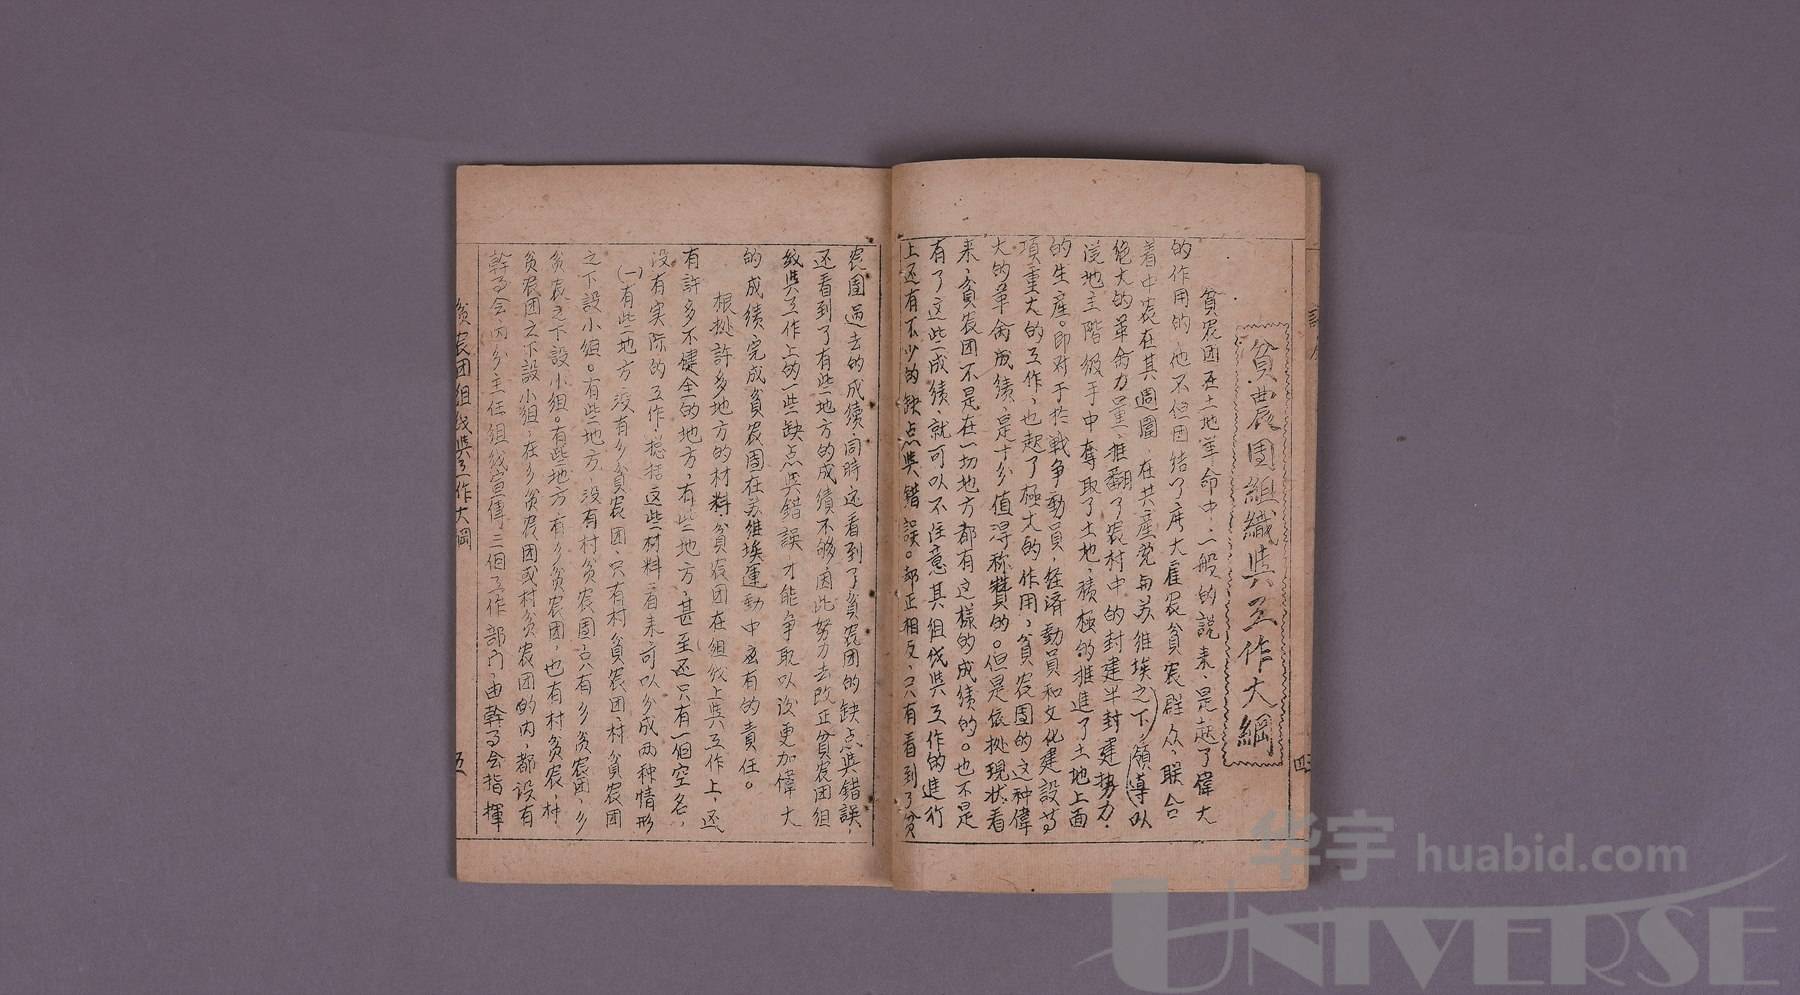 貧農團組織與工作大綱
貧农团在土地革命中、一般的説来、是起了偉大
的作用的、他不但团结了广大雇农貧农群众、联合
着中农在其週圍、在共産党与苏维埃之下(領導)以
绝大的革命力量、推翻了农村中的封建半封建勢力.
従地主階級手中奪取了土地、積極的推進了土地上面
的生産。即对于於戦争動員,经済動員和文化建設等
項重大的工作、也起了極大的作用,貧农团的这种偉
大的革命成绩、是十分值得称贊的。但是依拠現状看
来、貧农团不是在一切地方都有这様的成绩的。也不是
有了这些成绩、就可以不注意其组织與工作的進行
上还有不少的缺点與錯誤。却正相反、只有看到了貧
农團過去的成绩同時还看到了貧农团的缺点與錯誤、
还看到了有些地方的成绩不够因此努力去改正貧农团组
织與工作上的一些缺点與錯誤才能争取以後更加偉大
的成绩、完成貧农團在苏维埃運動中应有的責任。
根拠許多地方的材料、貧农团在组织上與工作上、还
有許多不健全的地方、有些地方、甚至还只有一個空名、
没有实际的工作、総括这些材料看来可以分成两种情形
(一)有些地方、没有乡貧农团、只有村貧农团、村貧农团
之下設小组。有些地方、没有村貧农團、只有乡貧农团、乡
貧农之下設小组。有些地方有乡貧农团、也有村貧农、村
貧农团之下設小组、在乡貧农团或村貧农团的内、都設有
幹事会、内分主任组织宣傳三個工作部门、由幹事会指揮
貧农团组织與工作大綱
五
四
华宇 huabid.com
UNIVERSE